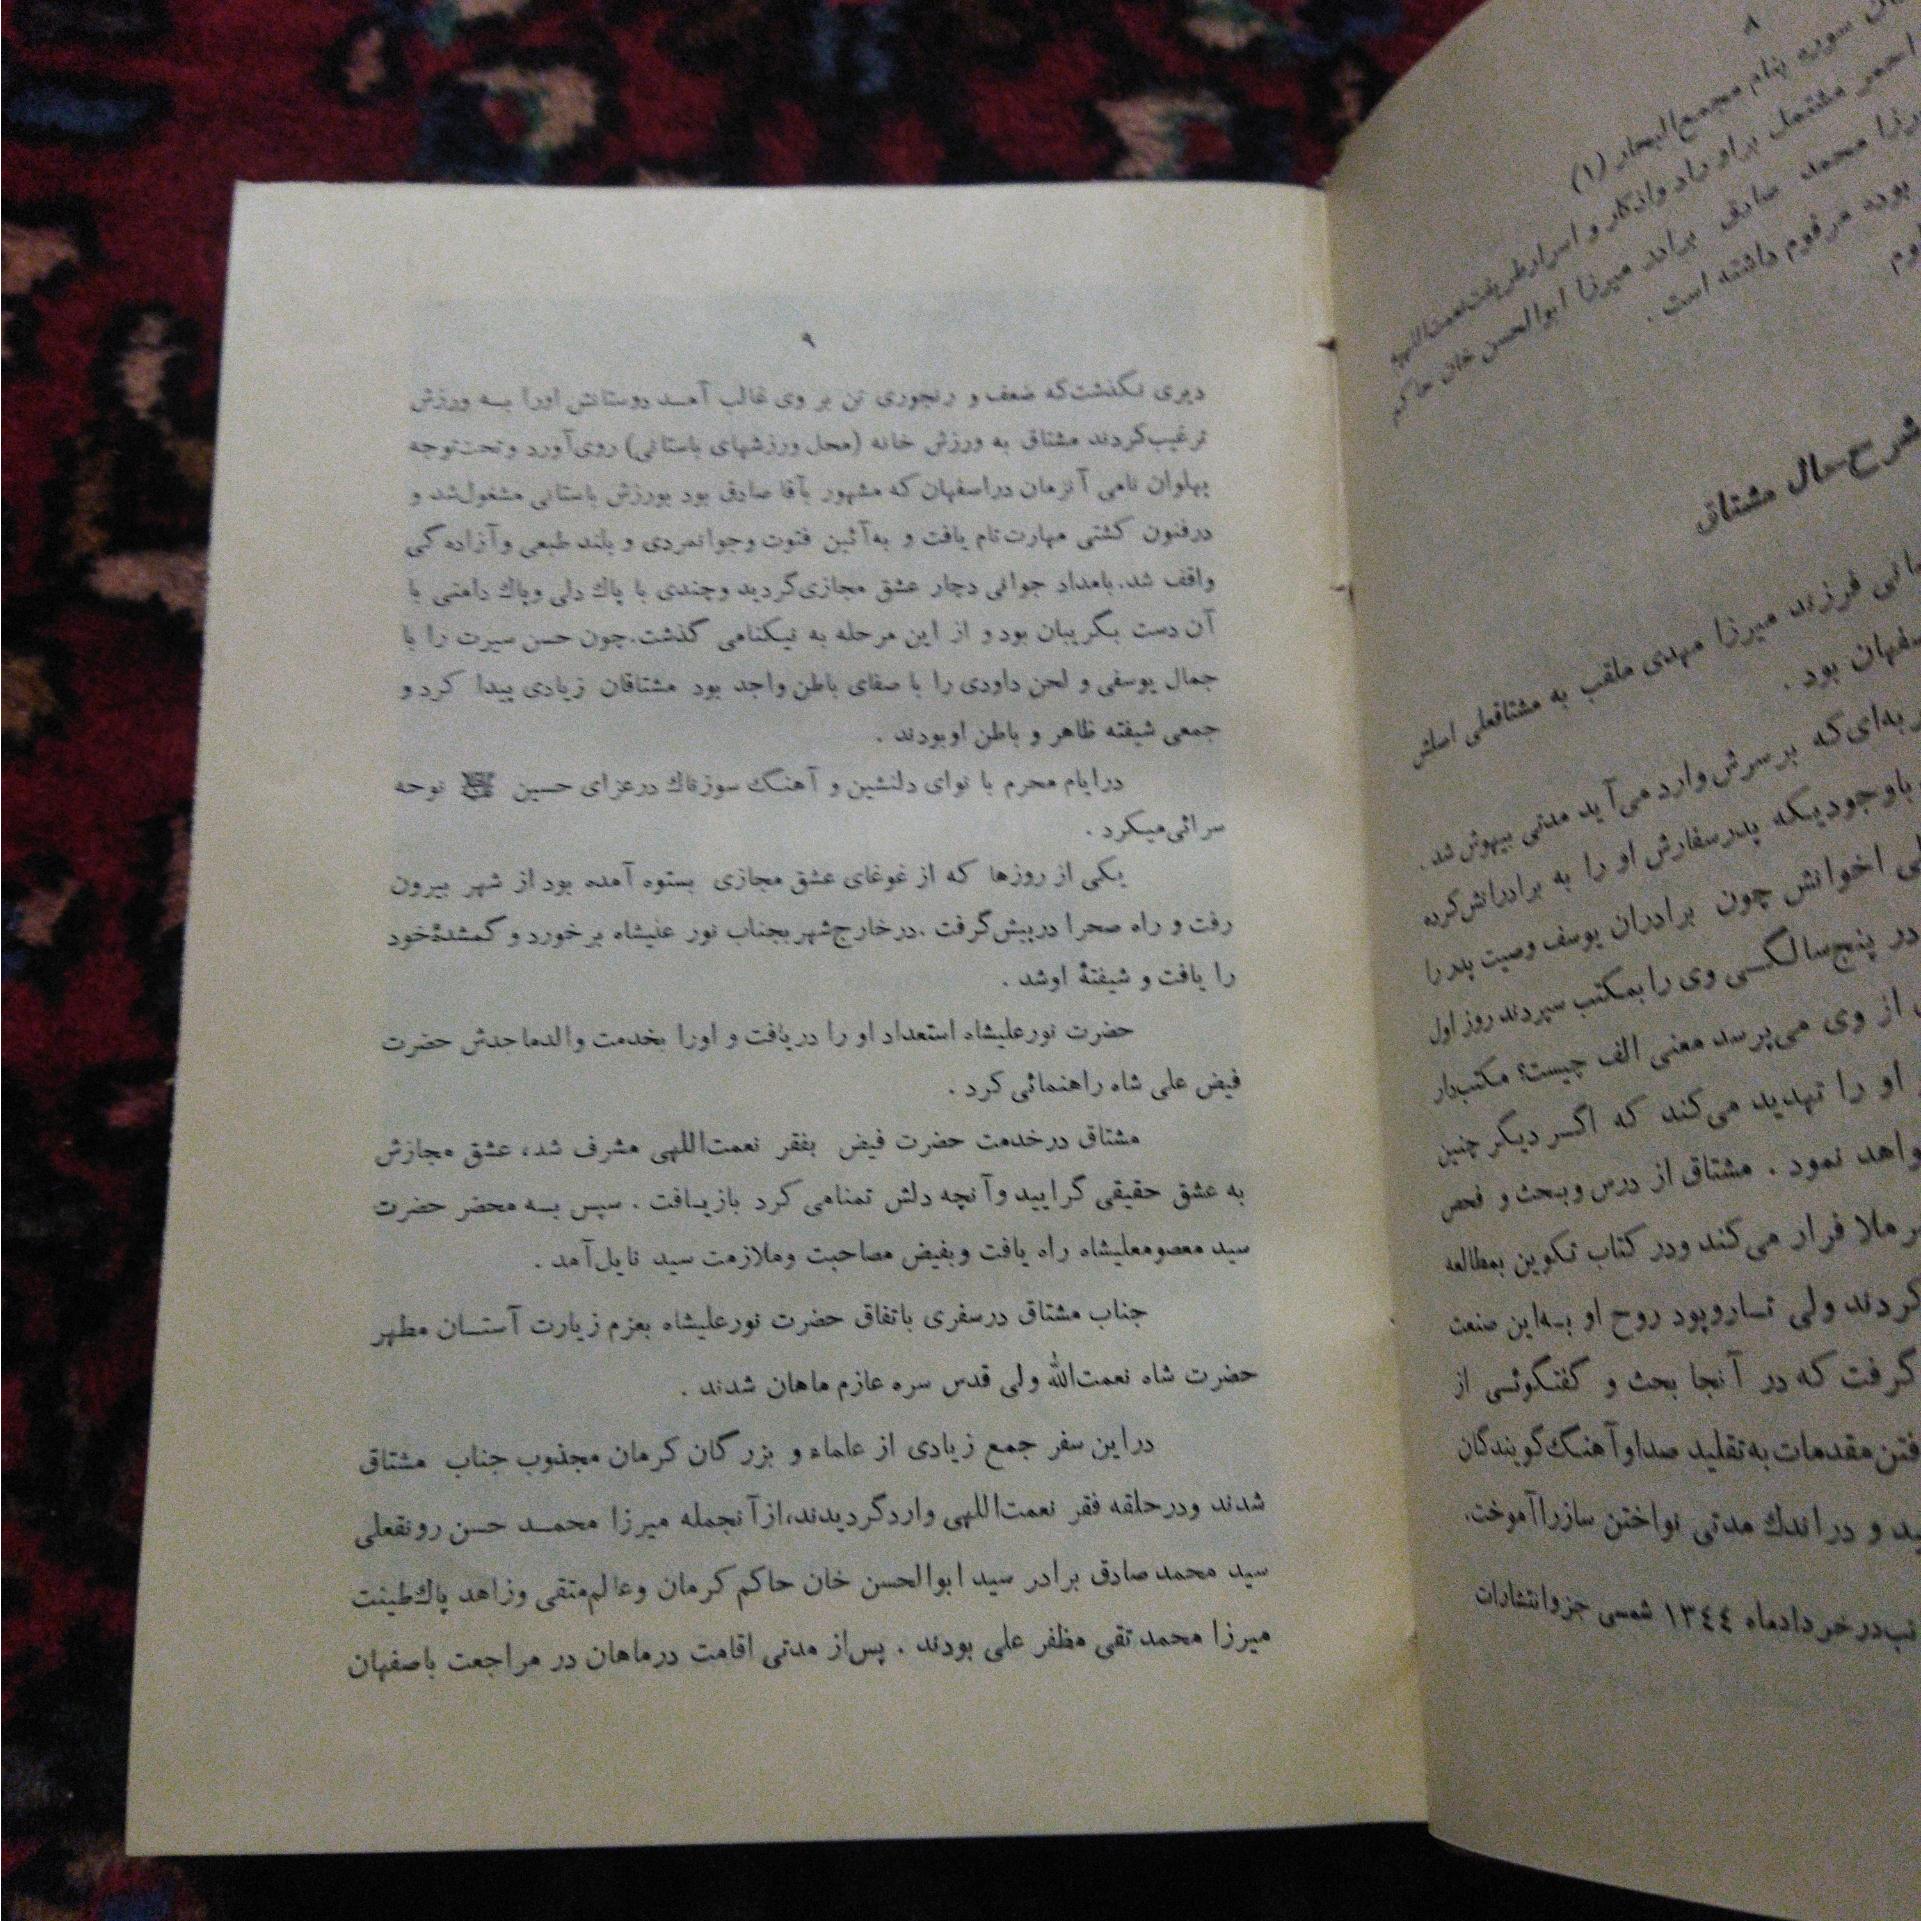 ۸
سوره بنام مجمع‌البحار (۱)
احمر مشتمل براوراد واذکار و اسرارطریقت نعمت‌اللهی
محمد صادق برادر میرزا ابوالحسن خان حاکم
بوده مرقوم داشته است .
شرح‌حال مشتاق
فرزند میرزا مهدی ملقب به مشتاقعلی اصلش
اصفهان بود .
که برسرش وارد می‌آید مدتی بیهوش شد .
باوجودیکه پدرسفارش او را به برادرانش‌کرده
اخوانش چون برادران یوسف وصیت پدر را
در پنج‌سالگـی وی را بمکتب سپردند روز اول
از وی می‌پرسد معنی الف چیست؟ مکتب‌دار
او را تهدید می‌کند که اگـر دیگر چنین
نمود . مشتاق از درس وبحث و فحص
ملا فرار می‌کند ودر کتاب تکوین بمطالعه
کردند ولی تـاروپود روح او بـه‌این صنعت
گرفت که در آنجا بحث و گفتگوئـی از
مقدمات به‌تقلید صداوآهنگ گویندگان
و دراندك مدتی نواختن سازراآموخت.
درخردادماه ۱۳٤٤ شمسی جزوانتشارات
۹
دیری نگذشت‌که ضعف و رنجوری تن بر وی غالب آمـد دوستانش اورا بـه ورزش
ترغیب‌کردند مشتاق به ورزش خانه (محل ورزشهای باستانی) روی‌آورد وتحت‌توجه
پهلوان نامی آنزمان دراصفهان که مشهور بآقا صادق بود بورزش باستانی مشغول‌شد و
درفنون کشتی مهارت‌تام یافت و به‌آئین فتوت وجوانمردی و بلند طبعی وآزاده گی
واقف شد.بامداد جوانی دچار عشق مجازی‌گردید وچندی با پاك دلی وپاك دامنی با
آن دست بگریبان بود و از این مرحله به نیکنامی گذشت.چون حسن سیرت را با
جمال یوسفی و لحن داودی را با صفای باطن واجد بود مشتاقان زیادی پیدا کرد و
جمعی شیفته ظاهر و باطن اوبودند .
درایام محرم با نوای دلنشین و آهنگ سوزناك درعزای حسین نوحه
سرائی‌میکرد .
یکی از روزها که از غوغای عشق مجازی بستوه آمده بود از شهر بیرون
رفت و راه صحرا درپیش‌گرفت .درخارج‌شهربجناب نور علیشاه برخورد و گمشدهٔ‌خود
را یافت و شیفتهٔ اوشد .
حضرت نورعلیشاه استعداد او را دریافت و اورا بخدمت والدماجدش حضرت
فیض علی شاه راهنمائی کرد .
مشتاق درخدمت حضرت فیض بفقر نعمت‌اللهی مشرف شد، عشق مجازش
به عشق حقیقی گرایید وآنچه دلش تمنامی کرد بازیـافت . سپس بـه محضر حضرت
سید معصومعلیشاه راه یافت وبفیض مصاحبت وملازمت سید نایل‌آمد .
جناب مشتاق درسفری باتفاق حضرت نورعلیشاه بعزم زیارت آستـان مطهر
حضرت شاه نعمت‌الله ولی قدس سره عازم ماهان شدند .
دراین سفر جمع زیادی از علماء و بزرگان کرمان مجذوب جناب مشتاق
شدند ودرحلقه فقر نعمت‌اللهی واردگردیدند،ازآنجمله میرزا محمـد حسن رونقعلی
سید محمد صادق برادر سید ابوالحسن خان حاکم کرمان وعالم‌متقی وزاهد پاك‌طینت
میرزا محمدتقی مظفر علی بودند . پس‌از مدتی اقامت درماهان در مراجعت باصفهان